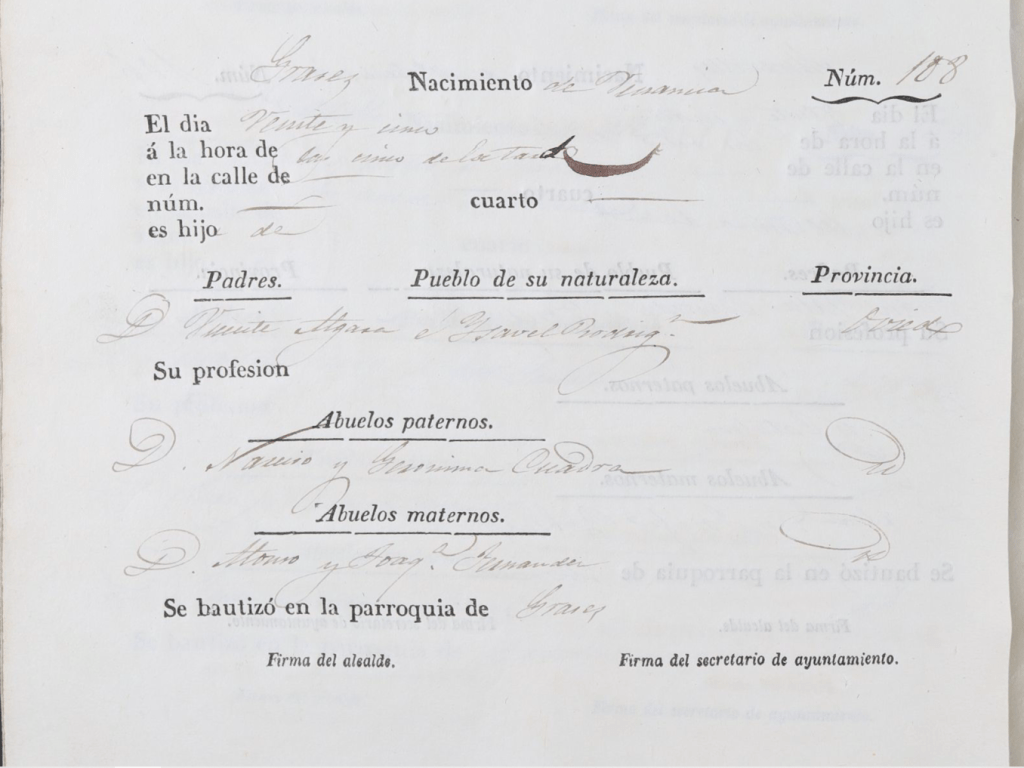 Grases Nacimiento de Venancia Núm. 108
El dia Veinte y cinco
á la hora de las cinco de la tarde
en la calle de
núm. cuarto
es hijo de
Padres. Pueblo de su naturaleza. Provincia.
D Vicente Algara é Ysavel Rodrig.z Oviedo
Su profesion
Abuelos paternos.
D. Narciso y Geronima Cuadra id
Abuelos maternos.
D. Alonso y Joaq.a Fernandez id
Se bautizó en la parroquia de Grases
Firma del alcalde. Firma del secretario de ayuntamiento.